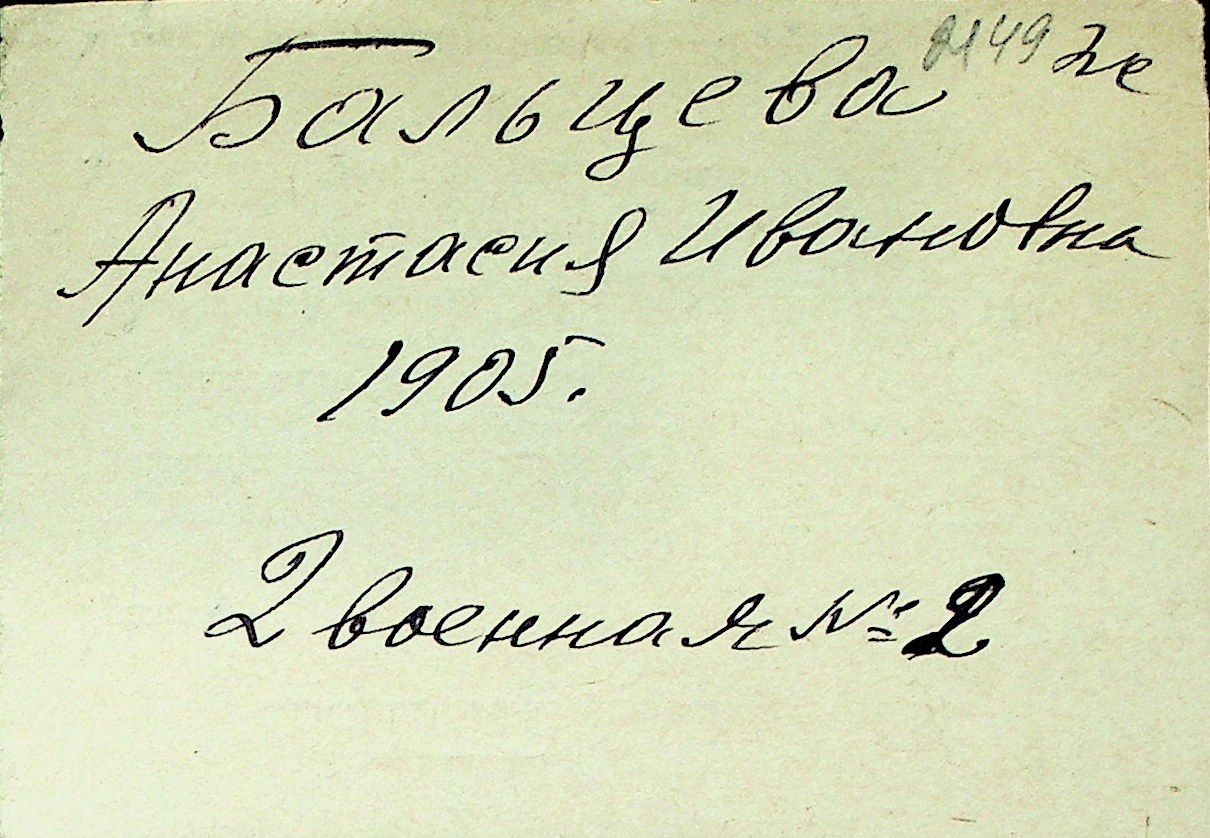 Бальцева
Анастасия Ивановна
1905.
2 военная № 2